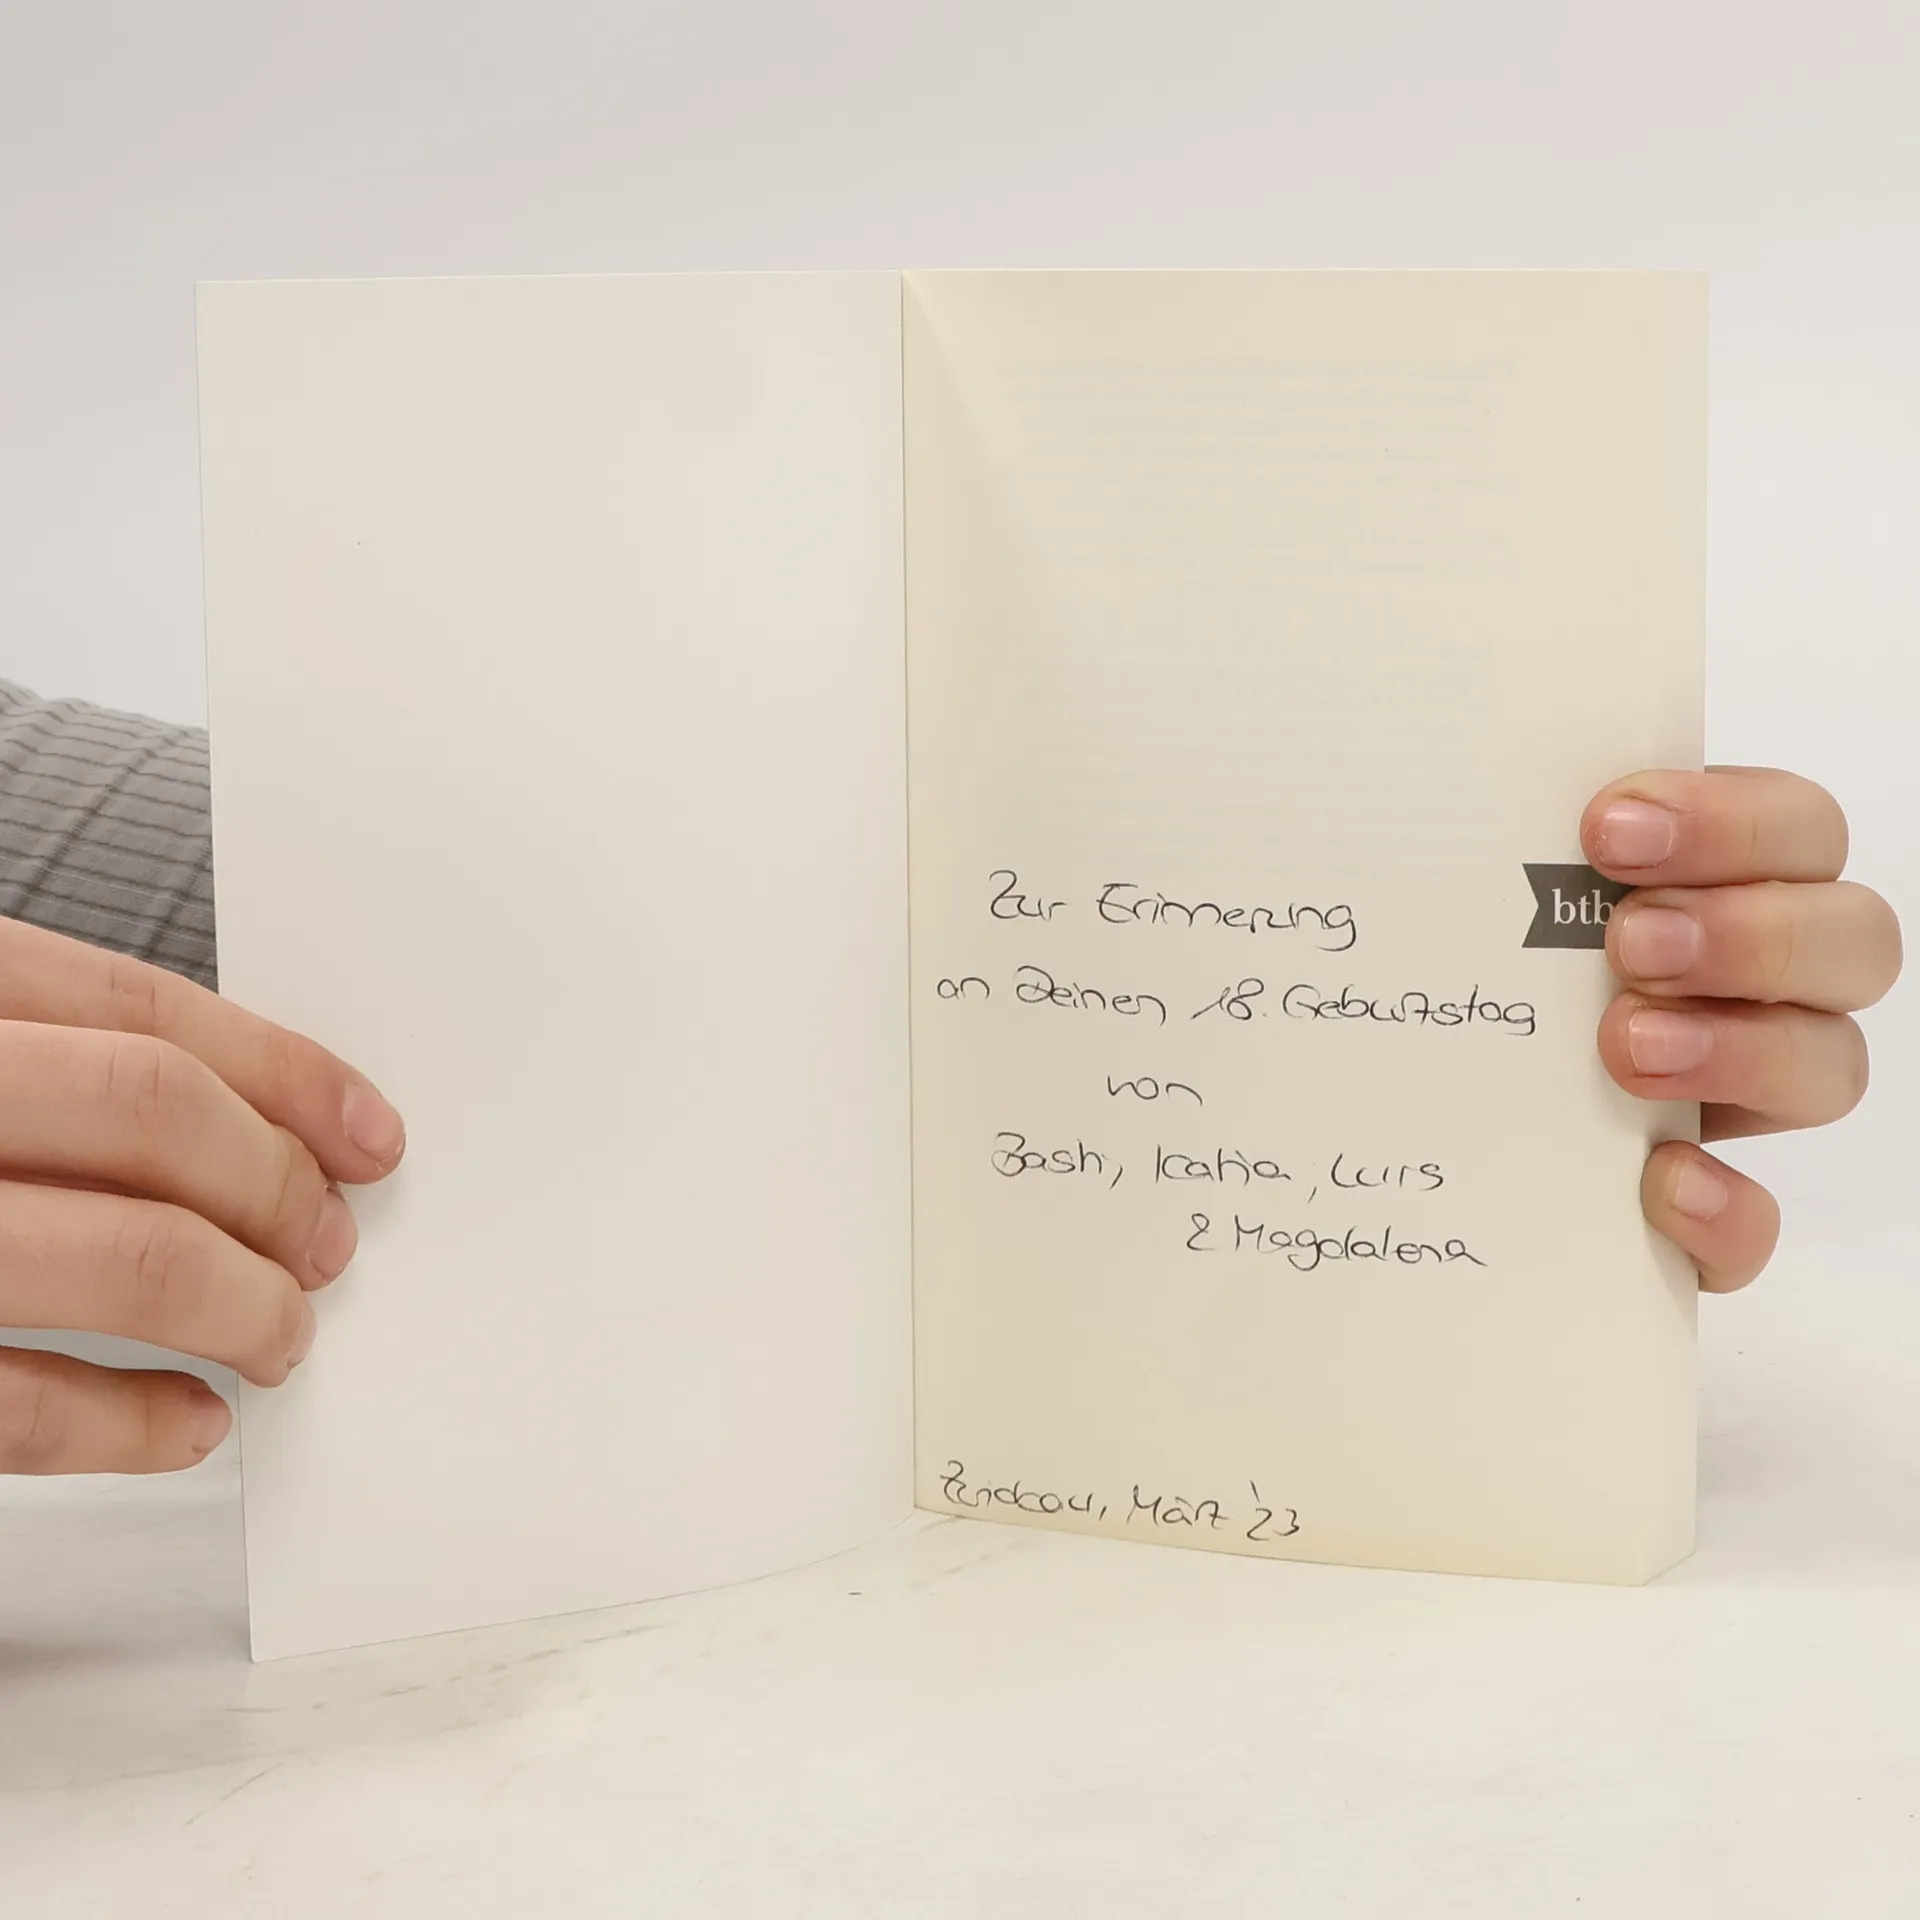 Zur Erinnerung
btb
an Deinen 18. Geburtstag
von
Bash, Katja, Luis
& Magdalena
Zwickau, März '23